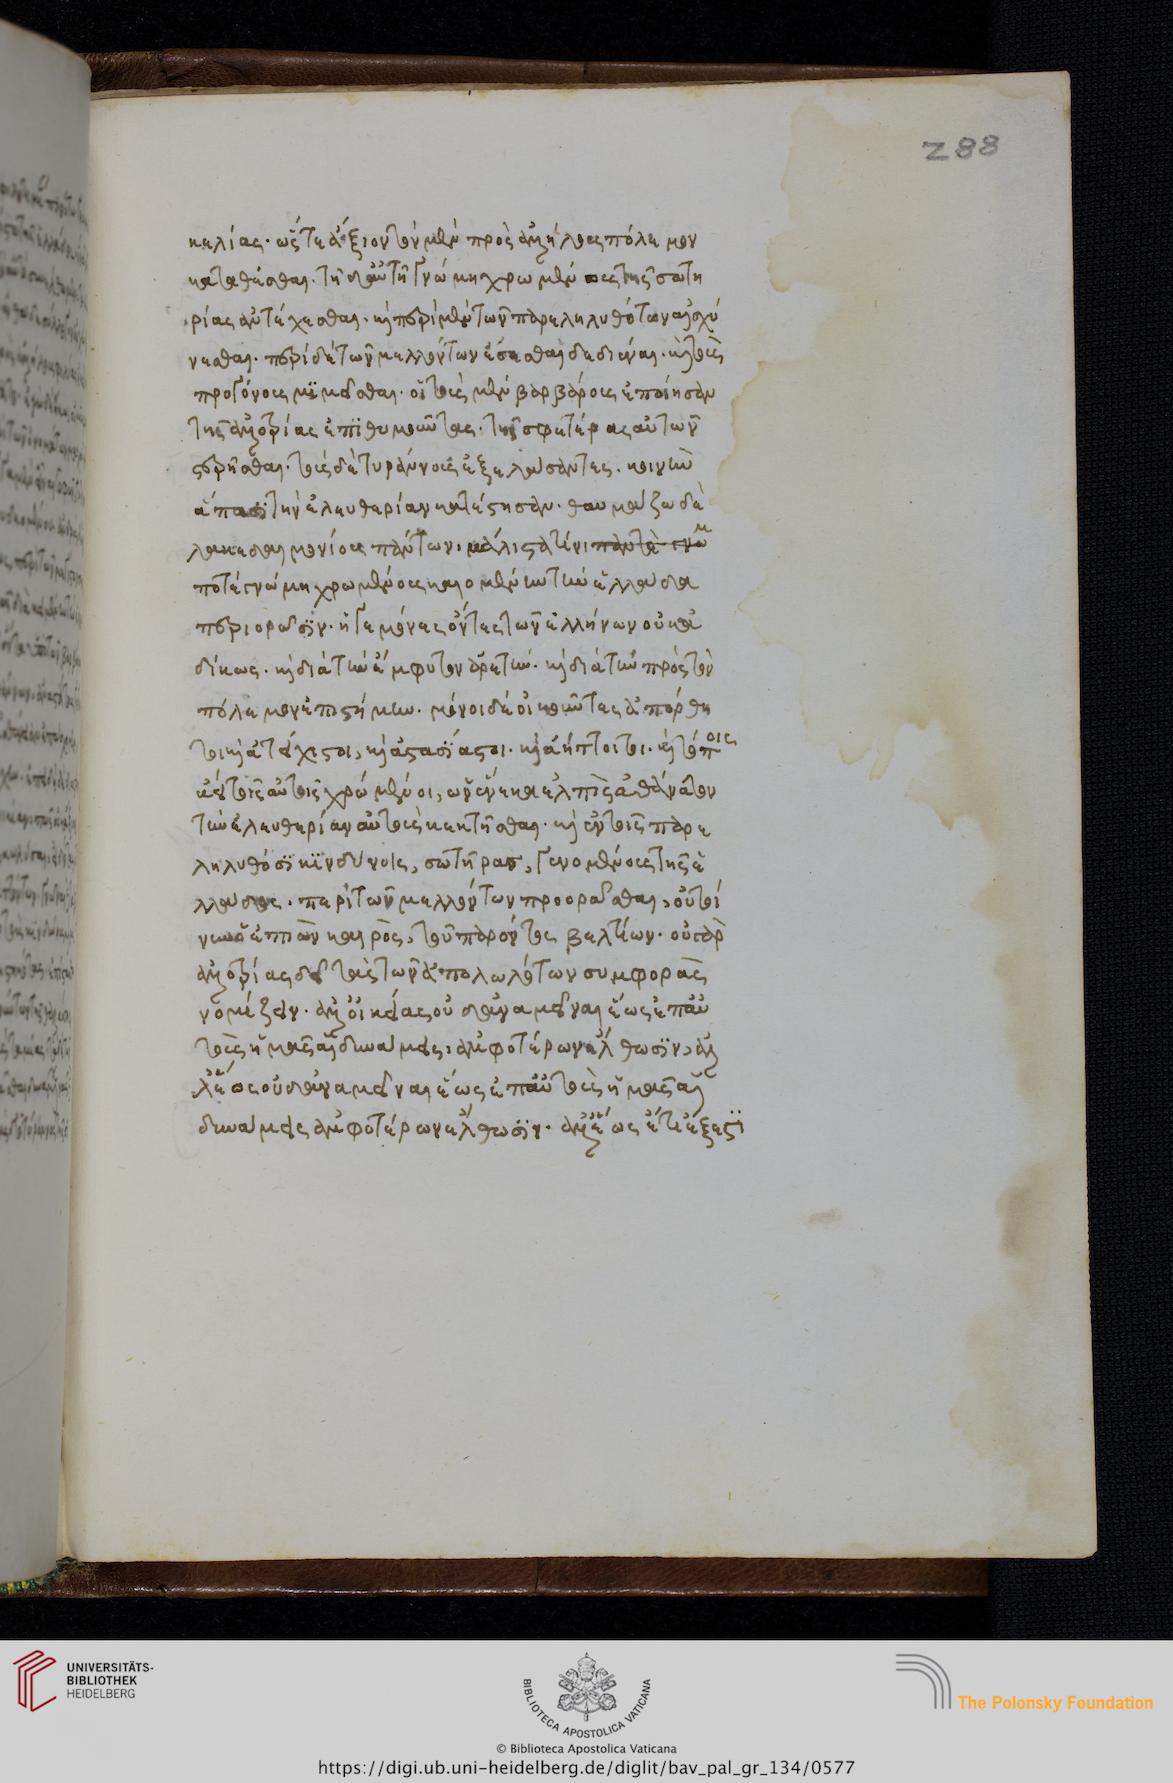 288
κελίας· ὥστε ἄξιον τὸν μὲν πρὸς ἀλλήλους πόλεμον
καταθέσθαι. τῆ δ' αὐτῆ γνώμη χρωμένους τῆς σωτη
ρίας ἀντέχεσθαι. καὶ περὶ μὲν τῶν παρεληλυθότων αἰσχύ
νεσθαι. περὶ δὲ τῶν μελλόντων ἔσεσθαι δεδιέναι. καὶ τοὺς
προγόνους μιμεῖσθαι. οἳ τοὺς μὲν βαρβάρους ἐποίησαν
τῆς ἀλλοτρίας ἐπιθυμοῦντας. τῆς σφετέρας αὐτῶν
στερῆσθαι. τοὺς δὲ τυράννους ἐξελάσαντες. κοινὴν
ἅπασι τὴν ἐλευθερίαν κατέστησαν. θαυμάζω δὲ
λακεδαιμονίους πάντων μάλιστα τίνι
ποτὲ γνώμη χρώμενοι καιομένην τὴν ἑλλάδα
περιορῶσιν. ἡγεμόνες ὄντες τῶν ἑλλήνων οὐκ ἀ
δίκως. καὶ διὰ τὴν ἔμφυτον ἀρετὴν. καὶ διὰ τὴν πρὸς τὸν
πόλεμον ἐπιστήμην. μόνοι δὲ οἰκοῦντες ἀπόρθη
τοι καὶ ἀτείχιστοι, καὶ ἀστασίαστοι. καὶ ἀήττητοι. καὶ τρόποις
ἀεὶ τοῖς αὐτοῖς χρώμενοι, ὧν ἕνεκα ἐλπὶς ἀθάνατον
τὴν ἐλευθερίαν αὐτοὺς κεκτῆσθαι. καὶ ἐν τοῖς παρε
ληλυθόσι κινδύνοις, σωτῆρας γενομένους τῆς ἑ
λλάδος. περὶ τῶν μελλόντων προορᾶσθαι, οὐ τοί
νυν ὁ ἐπιὼν καιρὸς, τοῦ παρόντος βελτίων. οὐ γὰρ
ἀλλοτρίας δεῖ τὰς τῶν ἀπολωλότων συμφορὰς
νομίζειν. ἀλλ' οἰκείας οὐδ' ἀναμεῖναι ἕως ἐπ' αὐ
τοὺς ἡμᾶς αἱ δυνάμεις, ἀμφοτέρων ἔλθωσιν, ἀλ
λ' ἕως οὐδ' ἀναμεῖναι ἕως ἐπ' αὐτοὺς ἡμᾶς αἱ
δυνάμεις ἀμφοτέρων ἔλθωσιν. ἀλλ' ἕως ἔτι ἔξεστι
UNIVERSITÄTS-
BIBLIOTHEK
HEIDELBERG
BIBLIOTECA APOSTOLICA VATICANA
The Polonsky Foundation
© Biblioteca Apostolica Vaticana
https://digi.ub.uni-heidelberg.de/diglit/bav_pal_gr_134/0577